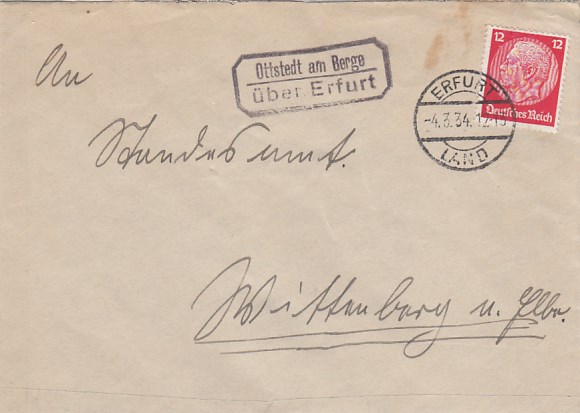 12 12
Deutsches Reich
Ottstedt am Berge
über Erfurt
ERFURT
-4.3.34.12-
LAND
An
Standesamt.
Wittenberg u. Elbe.